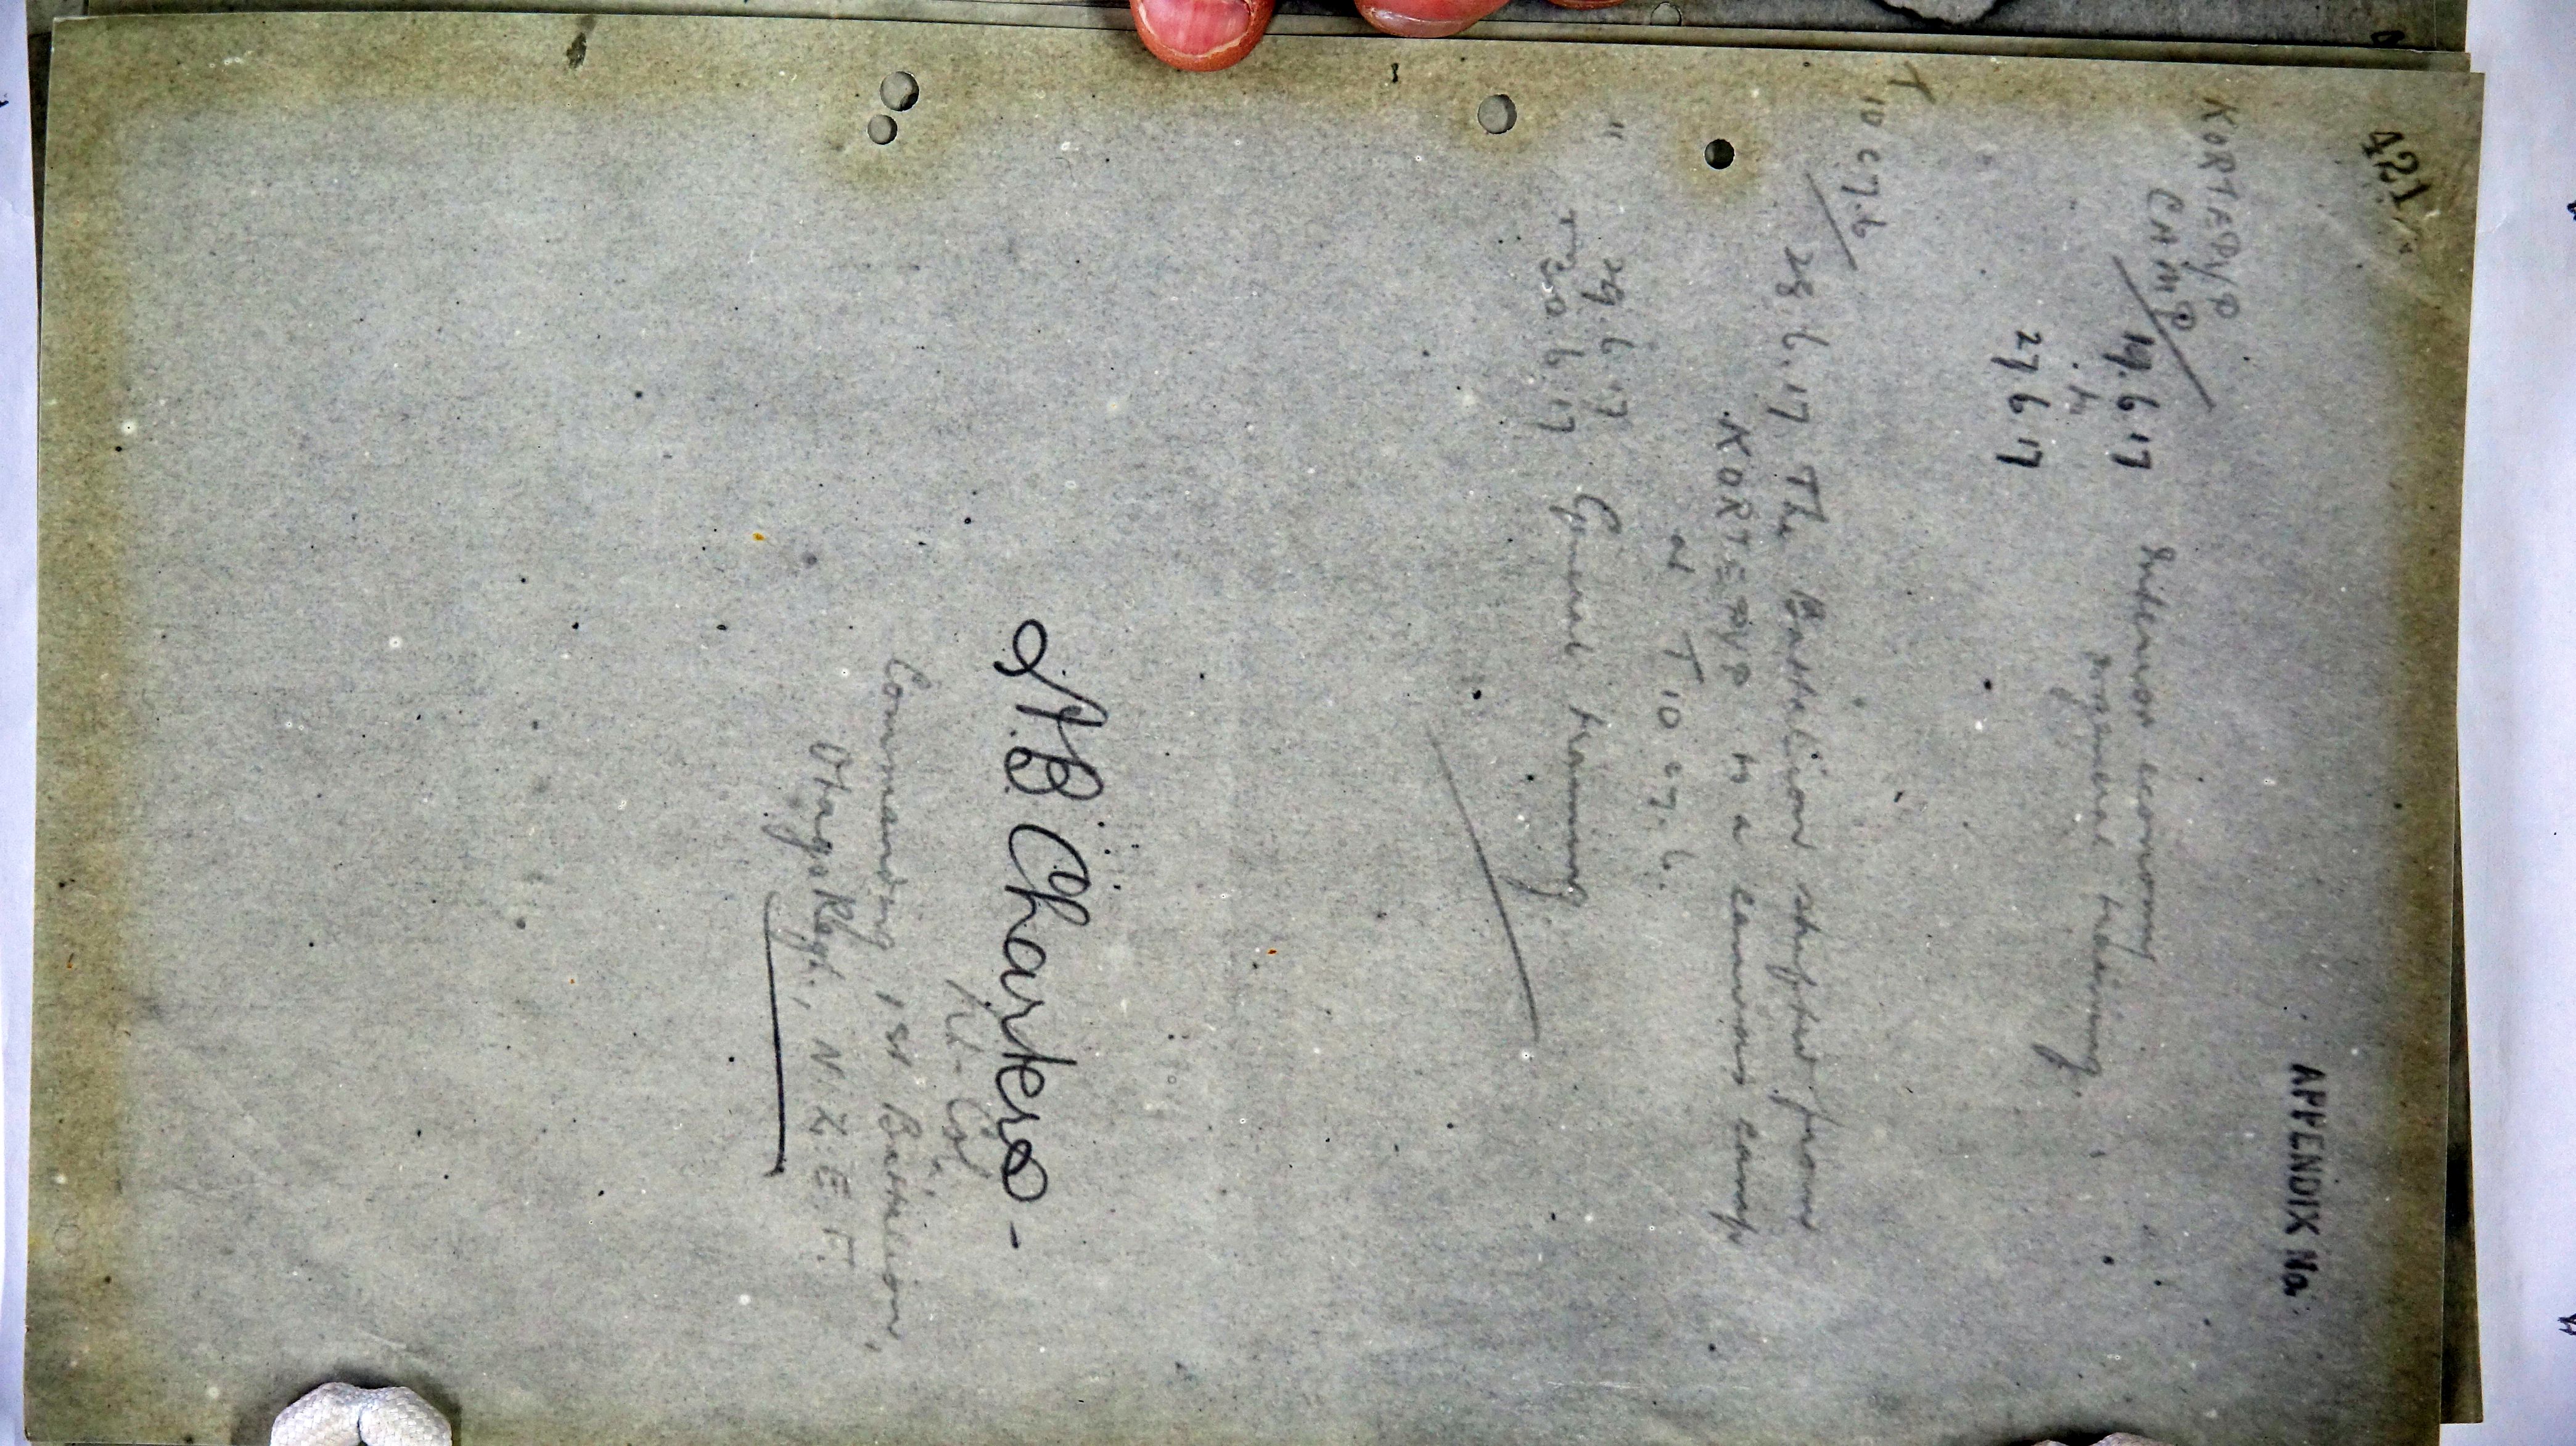 421
APPENDIX No.
KORTEPYP
CAMP
19.6.17 Interior economy
to
& general training.
27.6.17
T
10 c 7.6
28.6.17 The Battalion shifted from
KORTEPYP to a canvas camp
at T 10 c 7.6.
"
29.6.17
30.6.17 General training
A B Charters -
Lt-Col.
Commanding 1st Battalion,
Otago Regt., N.Z.E.F.